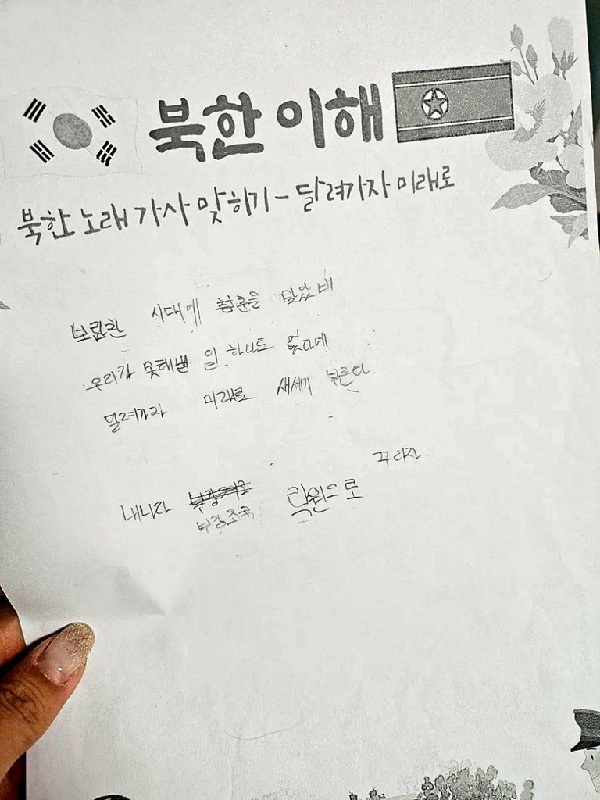 북한 이해
북한 노래 가사 맞히기 - 달려가자 미래로
보람찬 시대에 청춘을 담았네
우리가 못해낼 일 하나도 없다네
달려가자 미래로 새세기 부른다
내나라 부강조국 락원으로